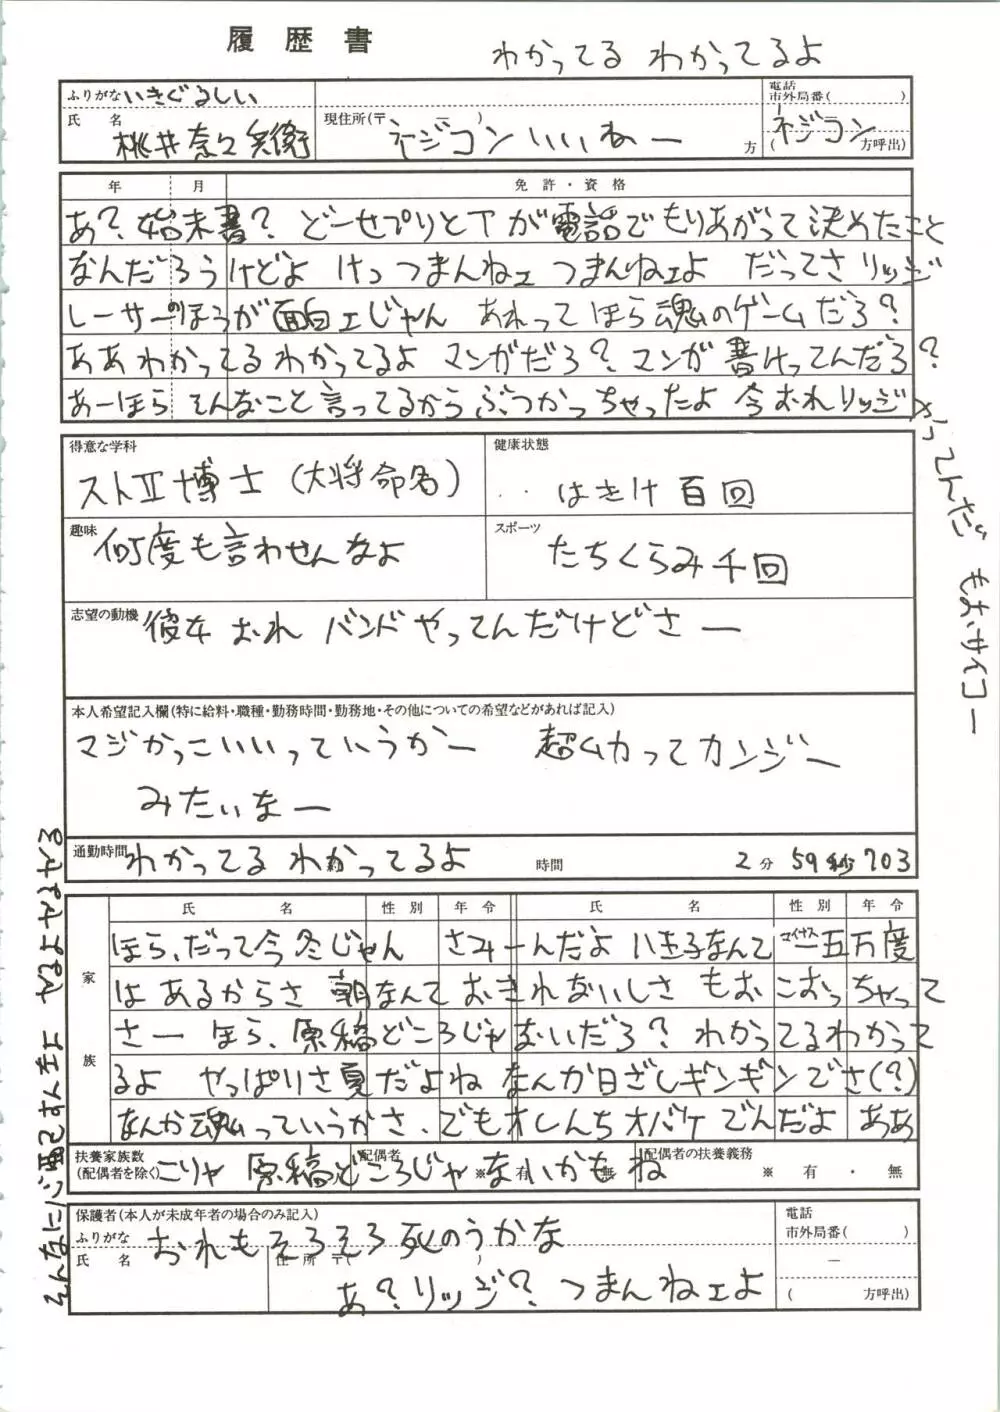 履歴書
わかってる わかってるよ
ふりがな いきぐるしい
氏名 桃井奈々兵衛
現住所(〒 ー )
ネジコン いいねー 方
電話
市外局番( )
ネジコン
( 方呼出)
年 月 免許・資格
あ？始末書？ どーせプリとTが電話でもりあがって決めたこと
なんだろうけどよ けっ つまんねェ つまんねェよ だってさ リッジ
レーサーのほうが面白ェじゃん あれってほら魂のゲームだろ？
ああわかってるわかってるよ マンガだろ？マンガ書けってんだろ？
あーほら そんなこと言ってるからぶつかっちゃったよ 今おれリッジ
やってんだ もおサイコー
得意な学科
ストⅡ博士(大将命名)
健康状態
‥はきけ百回
趣味
何度も言わせんなよ
スポーツ
たちくらみ千回
志望の動機
彼女 おれ バンドやってんだけどさー
本人希望記入欄(特に給料・職種・勤務時間・勤務地・その他についての希望などがあれば記入)
マジかっこいいっていうかー 超ムカってカンジー
みたいなー
通勤時間 わかってる わかってるよ
約 時間 2分 59秒703
家族
氏名 性別 年令 氏名 性別 年令
ほら、だって今冬じゃん さみーんだよ 八王子なんて マイナス一五万度
はあるからさ 朝なんておきれないしさ もおこおっちゃって
さー ほら、原稿どころじゃないだろ？わかってるわかって
るよ やっぱりさ夏だよね なんか日ざしギンギンでさ(？)
なんか魂っていうかさ、でもオレんちオバケでんだよ ああ
扶養家族数
(配偶者を除く)
配偶者
※ 有・無
配偶者の扶養義務
※ 有・無
こりゃ原稿どころじゃないかもね
保護者(本人が未成年者の場合のみ記入)
ふりがな
おれもそろそろ死のうかな
氏名
住所 〒( )
あ？リッジ？つまんねェよ
電話
市外局番( )
ー
( 方呼出)
そんなに心配すんなよ やるよやるやる